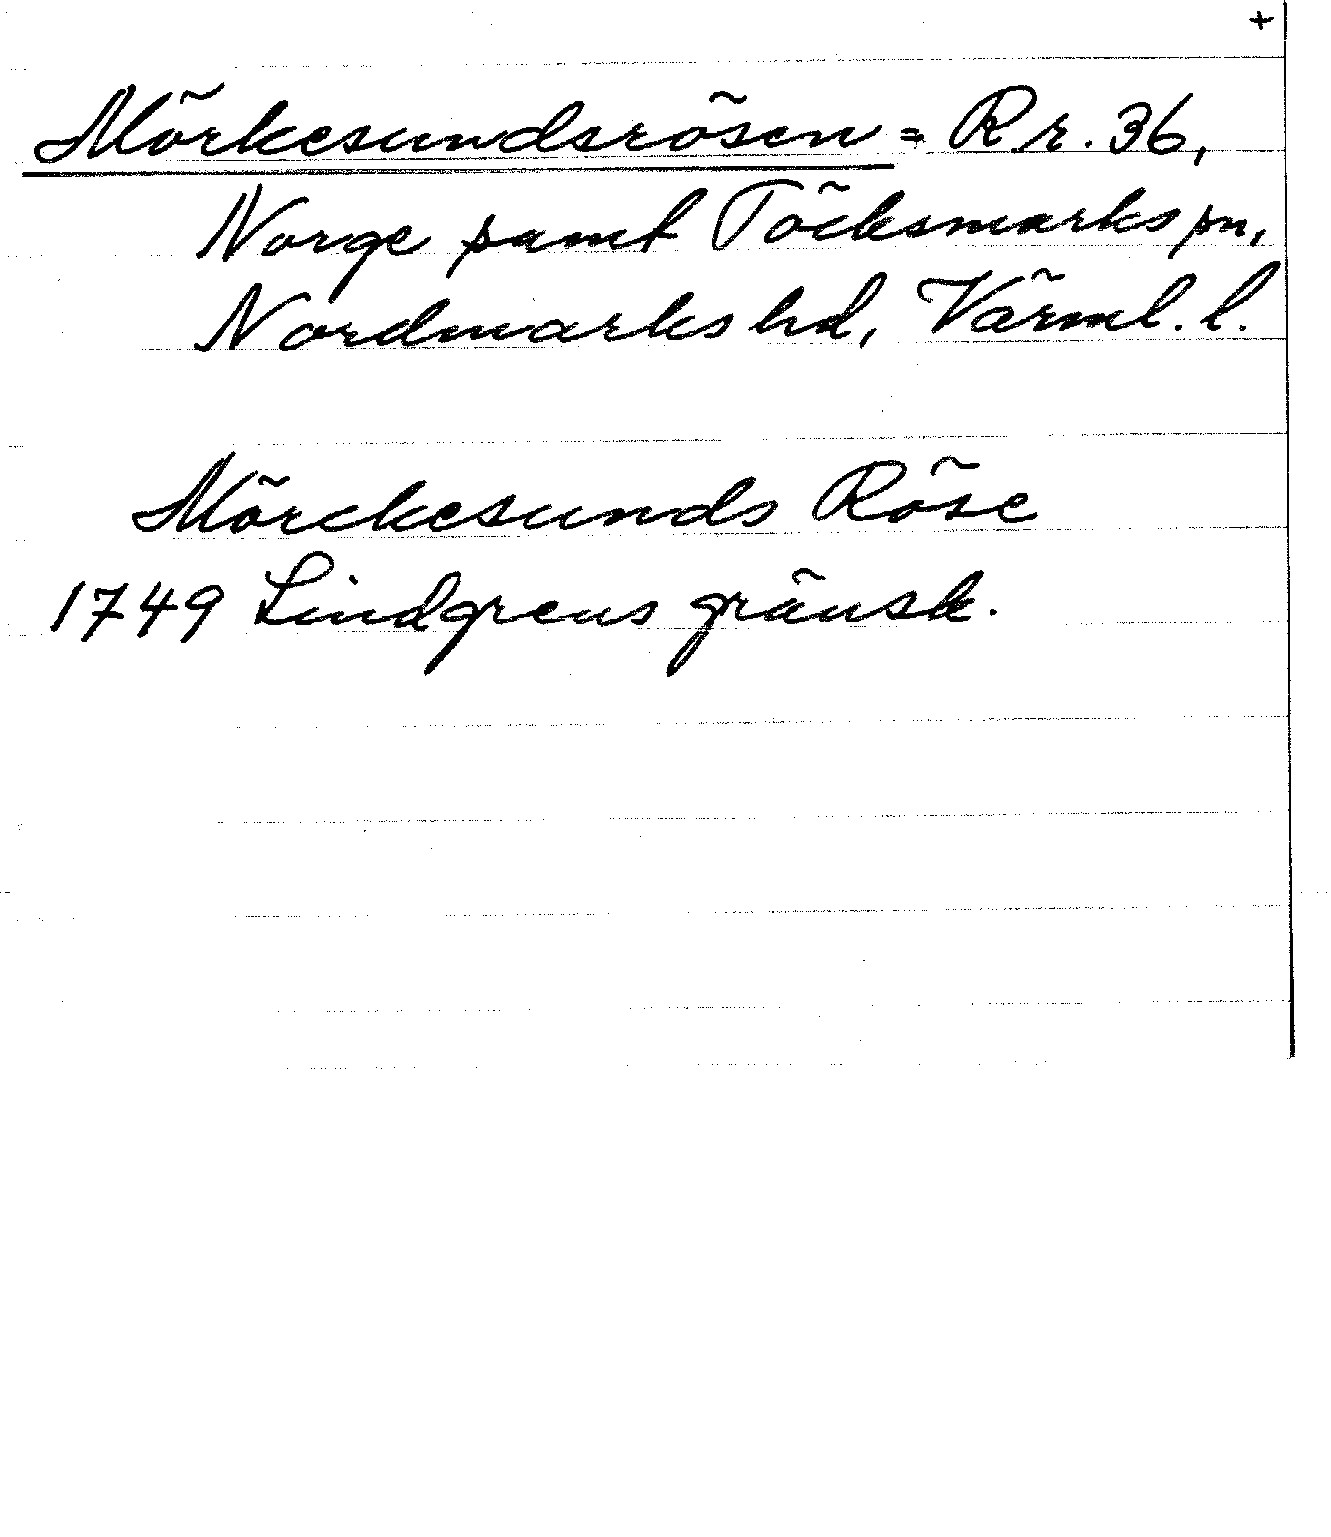 +
Mörkesundsrösen = R r. 36,
Norge samt Töcksmarks sn,
Nordmarks hd, Värml. l.
Mörckesunds Röse
1749 Lindgrens gränsk.